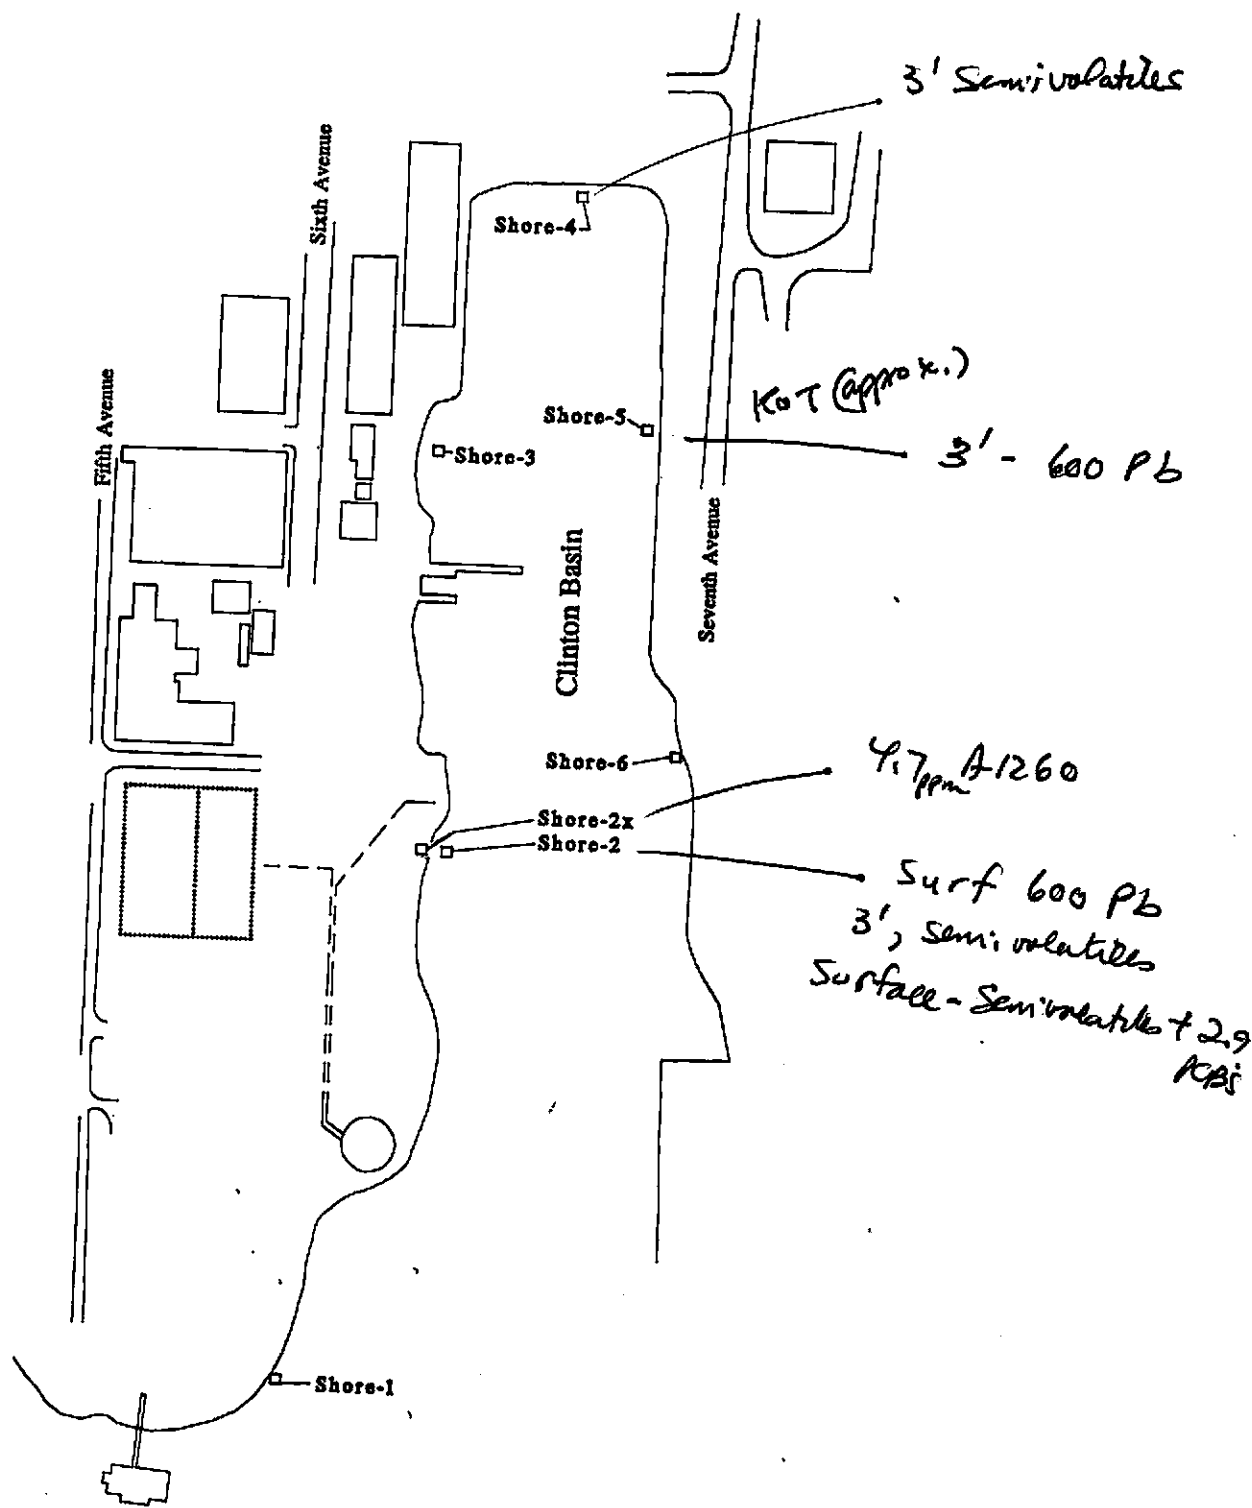 3' Semivolatiles
Sixth Avenue
Shore-4
Fifth Avenue
KOT (approx.)
Shore-5
Shore-3
3' - 600 Pb
Clinton Basin
Seventh Avenue
Shore-6
4.7 ppm A-1260
Shore-2x
Shore-2
Surf 600 Pb
3', semivolatiles
Surface - Semivolatiles + 2.9
PCBs
Shore-1